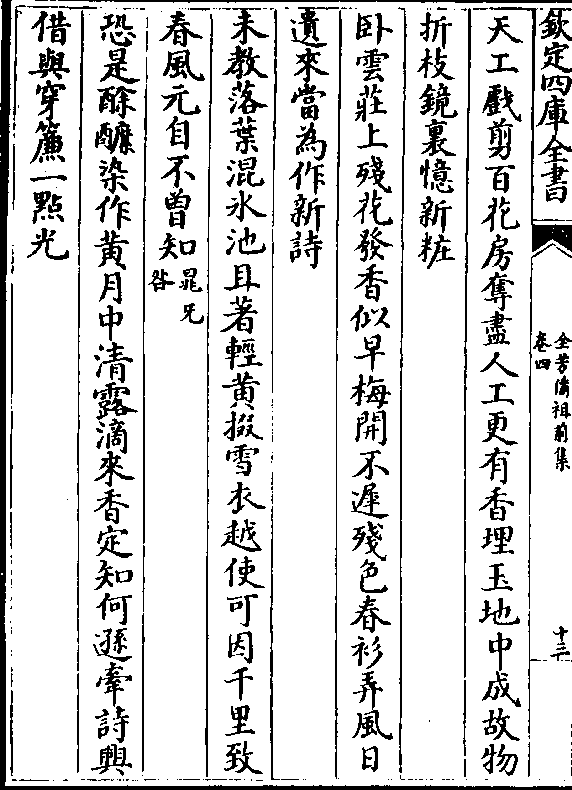 欽定四庫全書
全芳備祖前集
卷四
十三
天工戲剪百花房奪盡人工更有香埋玉地中成故物
折枝鏡裏憶新粧
卧雲莊上殘花發香似早梅開不遲殘色春衫弄風日
遺來當為作新詩
未教落葉混氷池且著輕黄掇雪衣越使可因千里致
春風元自不曾知晁咎
恐是酴醿染作黄月中清露滴來香定知何遜牽詩興
借與穿簾一點光